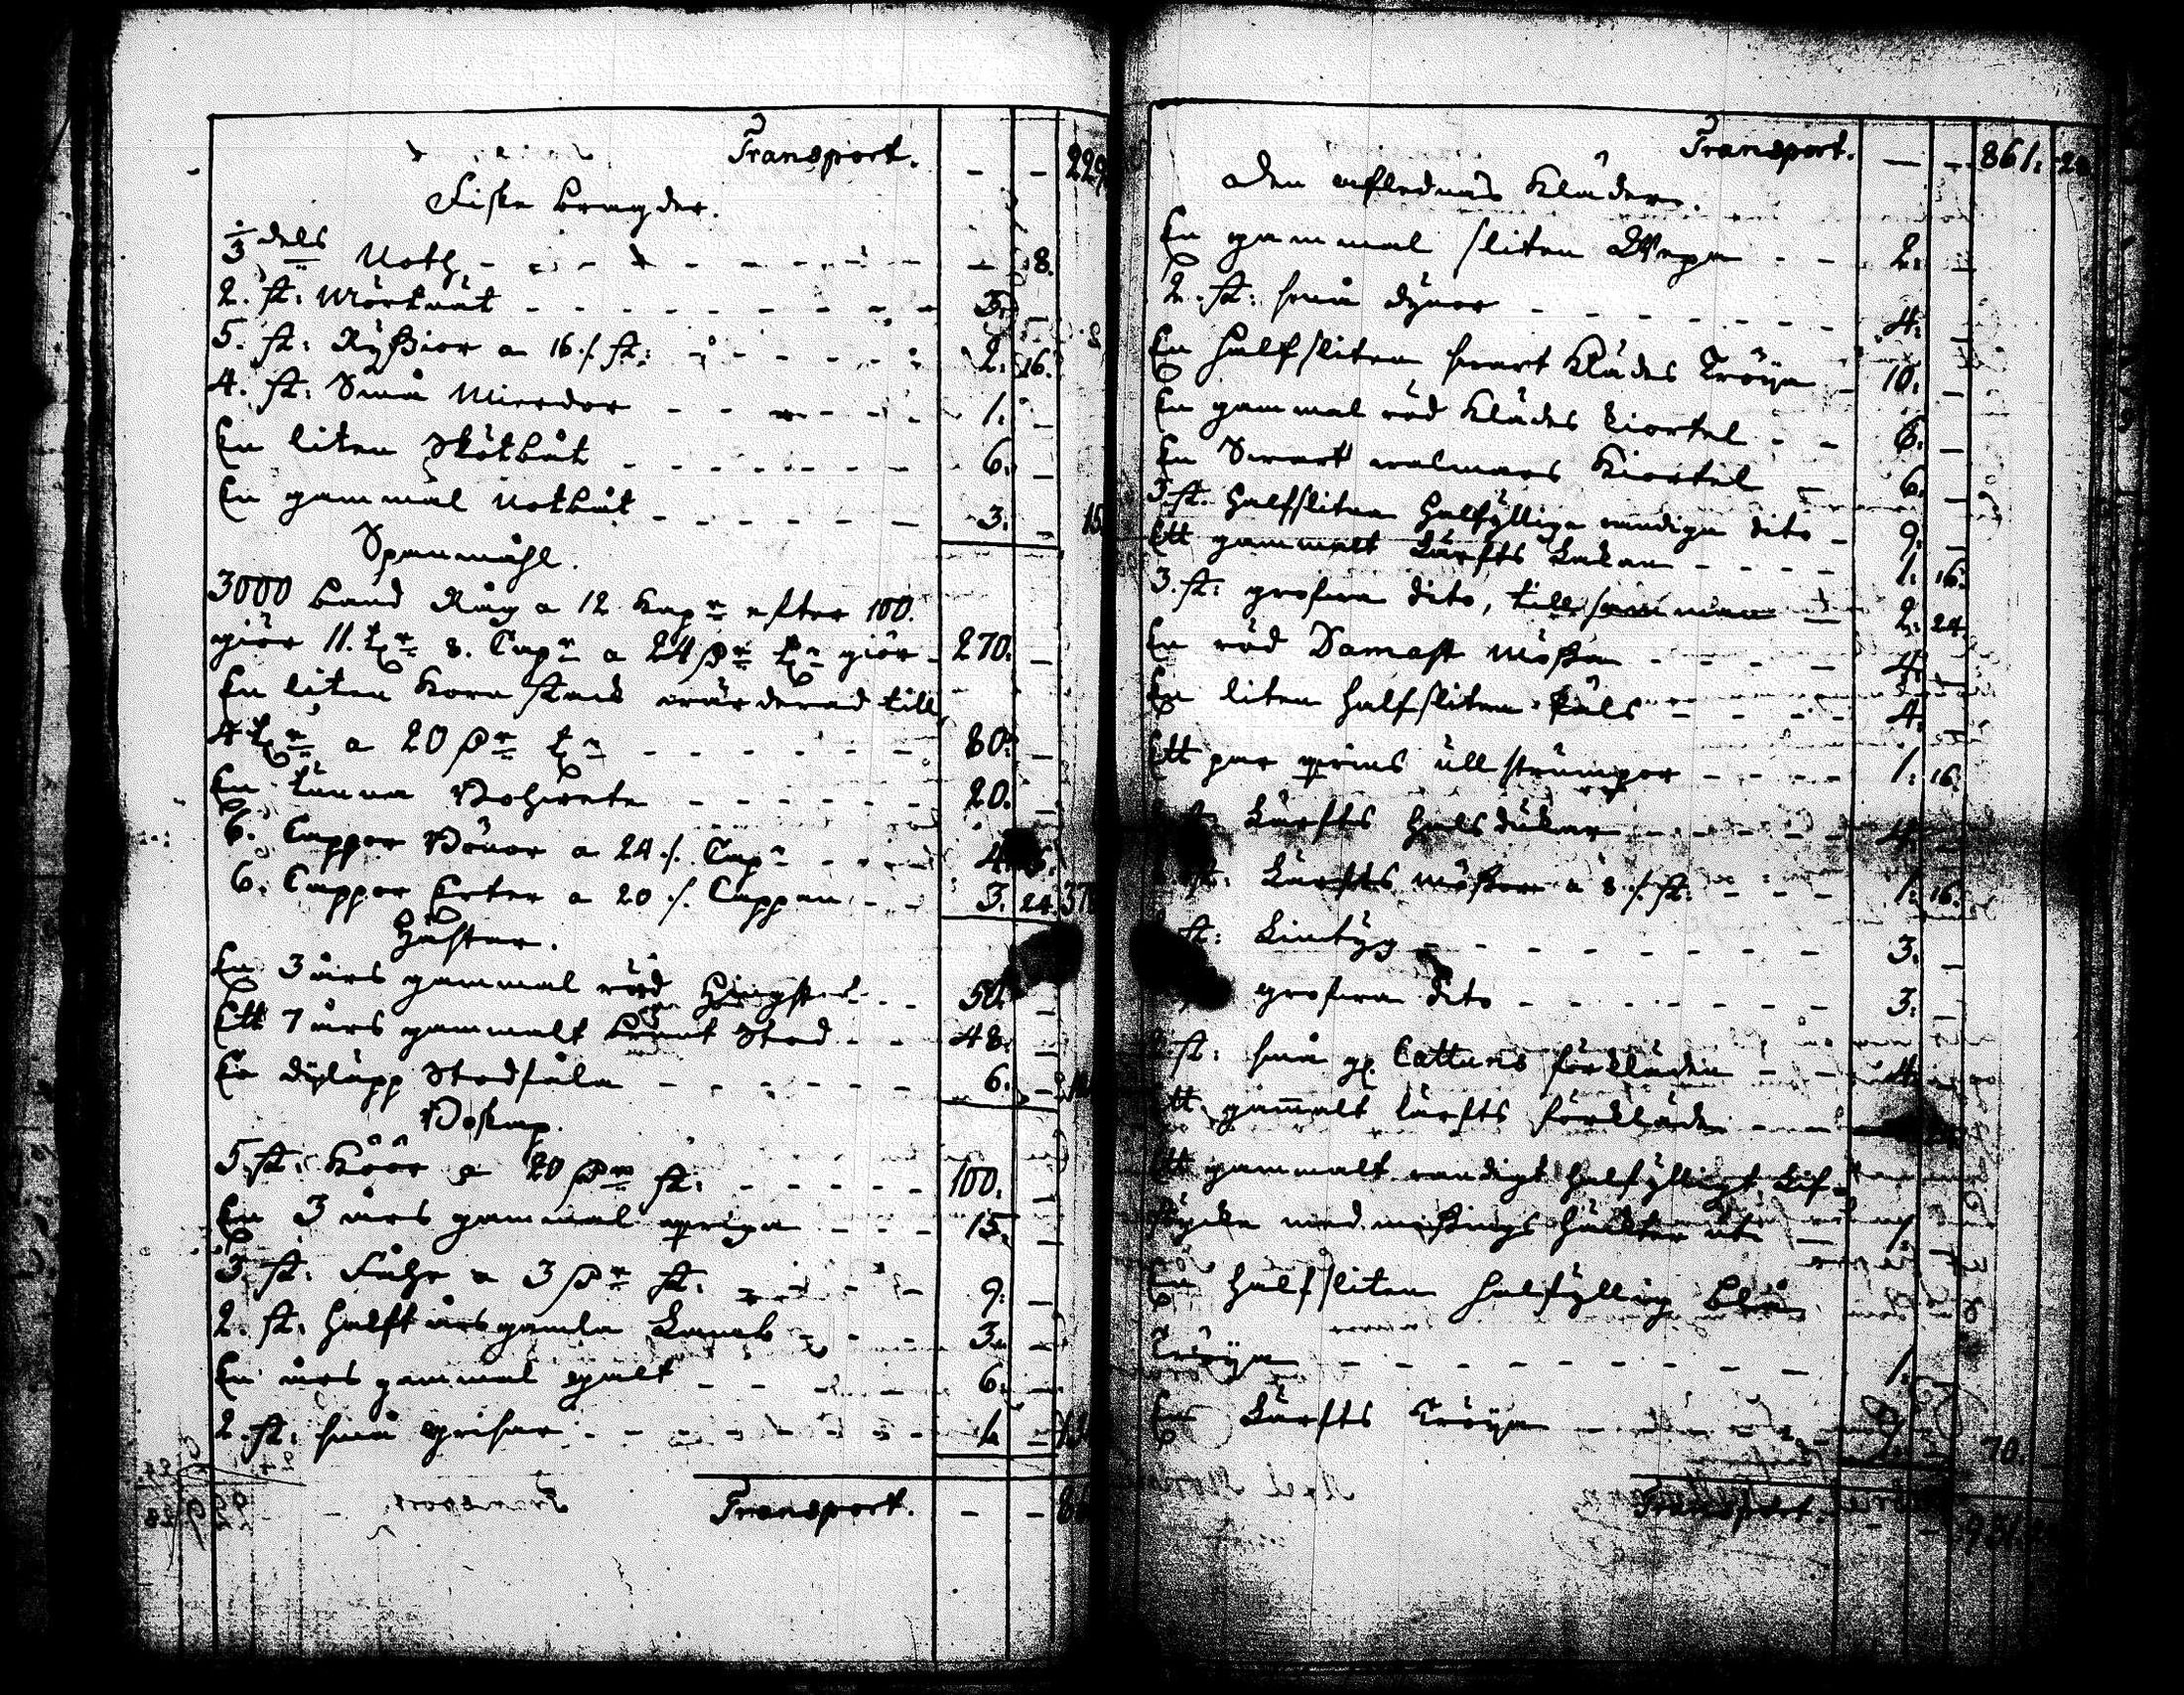 Transport. - - 229
Fiske bragder.
1/3 dels Noth - - - - - - - - 8.
2. st: Mörtnät - - - - - - - 3. -
5. st: Ryssior a 16 /. st: - - - - 2. 16.
4. st: Små Mierdor - - - - - 1. -
En liten Skötbåt - - - - - - 6. -
En gammal Notbåt - - - - - - 3. - 15
Spanmåhl.
3000 band Råg a 12 Kapr efter 100.
giör 11. tr 8. Capr a 24 Dr tn giör - 270. -
En liten Korn stack värderad till
4 tr a 20 Dr tn - - - - - - 80. -
En tunna Bohvete - - - - - - 20. -
6. Cappor Bönor a 24 /. Cap - - - 4.
6. Cappor Erter a 20 /. Cappan - - 3. 24. 37
Hästar.
En 3 års gammal röd Hingst - - 50. -
Ett 7 års gammalt brunt Stod - - 48. -
En dylapp Stodfåla - - - - - - 6. -
Boskap.
5. st: Köör a 20 Dr st: - - - - - 100. -
En 3 års gammal qviga - - - 15. -
3. st: Fåhr a 3 Dr st: - - - - 9. -
2. st: halft års gamla Lamb - - - 3. -
En års gammal galt - - - - - 6. -
2. st: små grisar - - - - - - 1. -
Transport. - - 86
Transport. - - 861. 24
Den aflednas Kläder.
En gammal sliten Wepa - - 2. -
2. st: små dynor - - - - - - - 4. -
En halfsliten svart Klädes Tröya - 10. -
En gammal röd Klädes kiortel - - 6. -
En Svart valmars Kiortel - 6. -
3. st. halfslitna halfylliga randiga dito - 9. -
Ett gammalt Lärfts Lakan - - - - 1. 16.
3. st: grofva dito, tillsamman - 2. 24.
En röd Damast mössa - - - - 4. -
En liten halfsliten Päls - - - - 4. -
Ett par ull strumpor - - - - 1. 16.
st: Lärfts halsdukar - - - - - 4. -
st: Lärfts mössor a 8 /. st: - - - 1. 16.
st: Lintyg - - - - - - - - 3. -
grofva dito - - - - - - - 3. -
st: små Cattuns förkläden - - 4.
Ett gammalt lärfts förkläde - -
Ett gammalt randigt halfylligt Lif-
stycke med mässings häktor uti - 1. -
En halfsliten halfyllig blå
Tröya - - - - - - - - 1.
En Lärfts Tröya - - - - - 70.
Transport. - - 931.